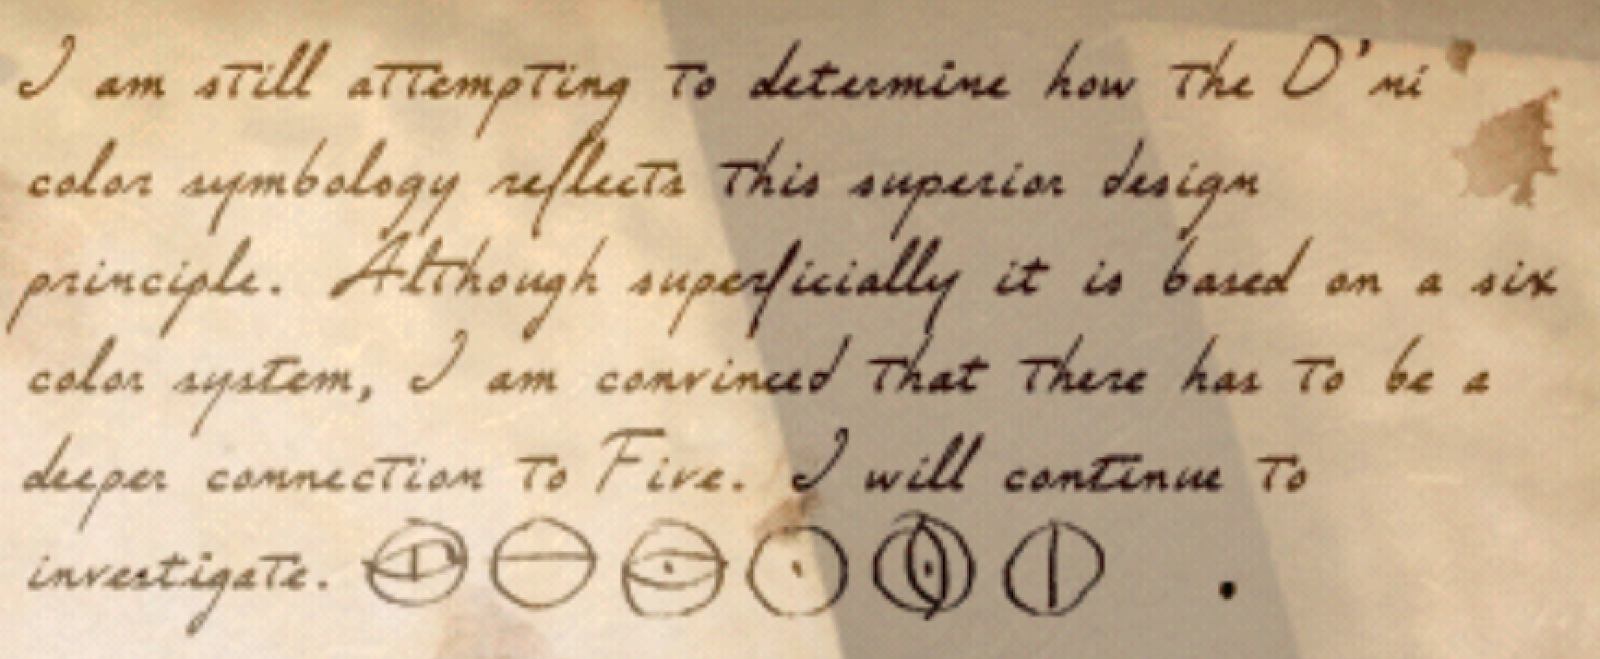 I am still attempting to determine how the D'ni
color symbology reflects this superior design
principle. Although superficially it is based on a six
color system, I am convinced that there has to be a
deeper connection to Five. I will continue to
investigate.